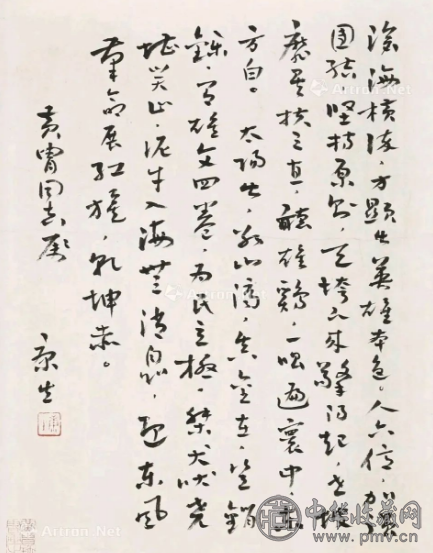 滄海橫流，方顯出英雄本色。人六億，加强
團結，堅持原則，天垮下來擎得起，世披
靡矣扶之直，聽雄鷄，一唱遍寰中，東
方白。太陽出，冰山滴，真金在，豈銷
鑠，有雄文四卷，为民立極。桀犬吠堯
堪笑止，泥牛入海無消息，迎東風
革命展紅旗，乾坤赤。
黄胄同志属
康生
Artron.Net
中华收藏网
www.pmw.com